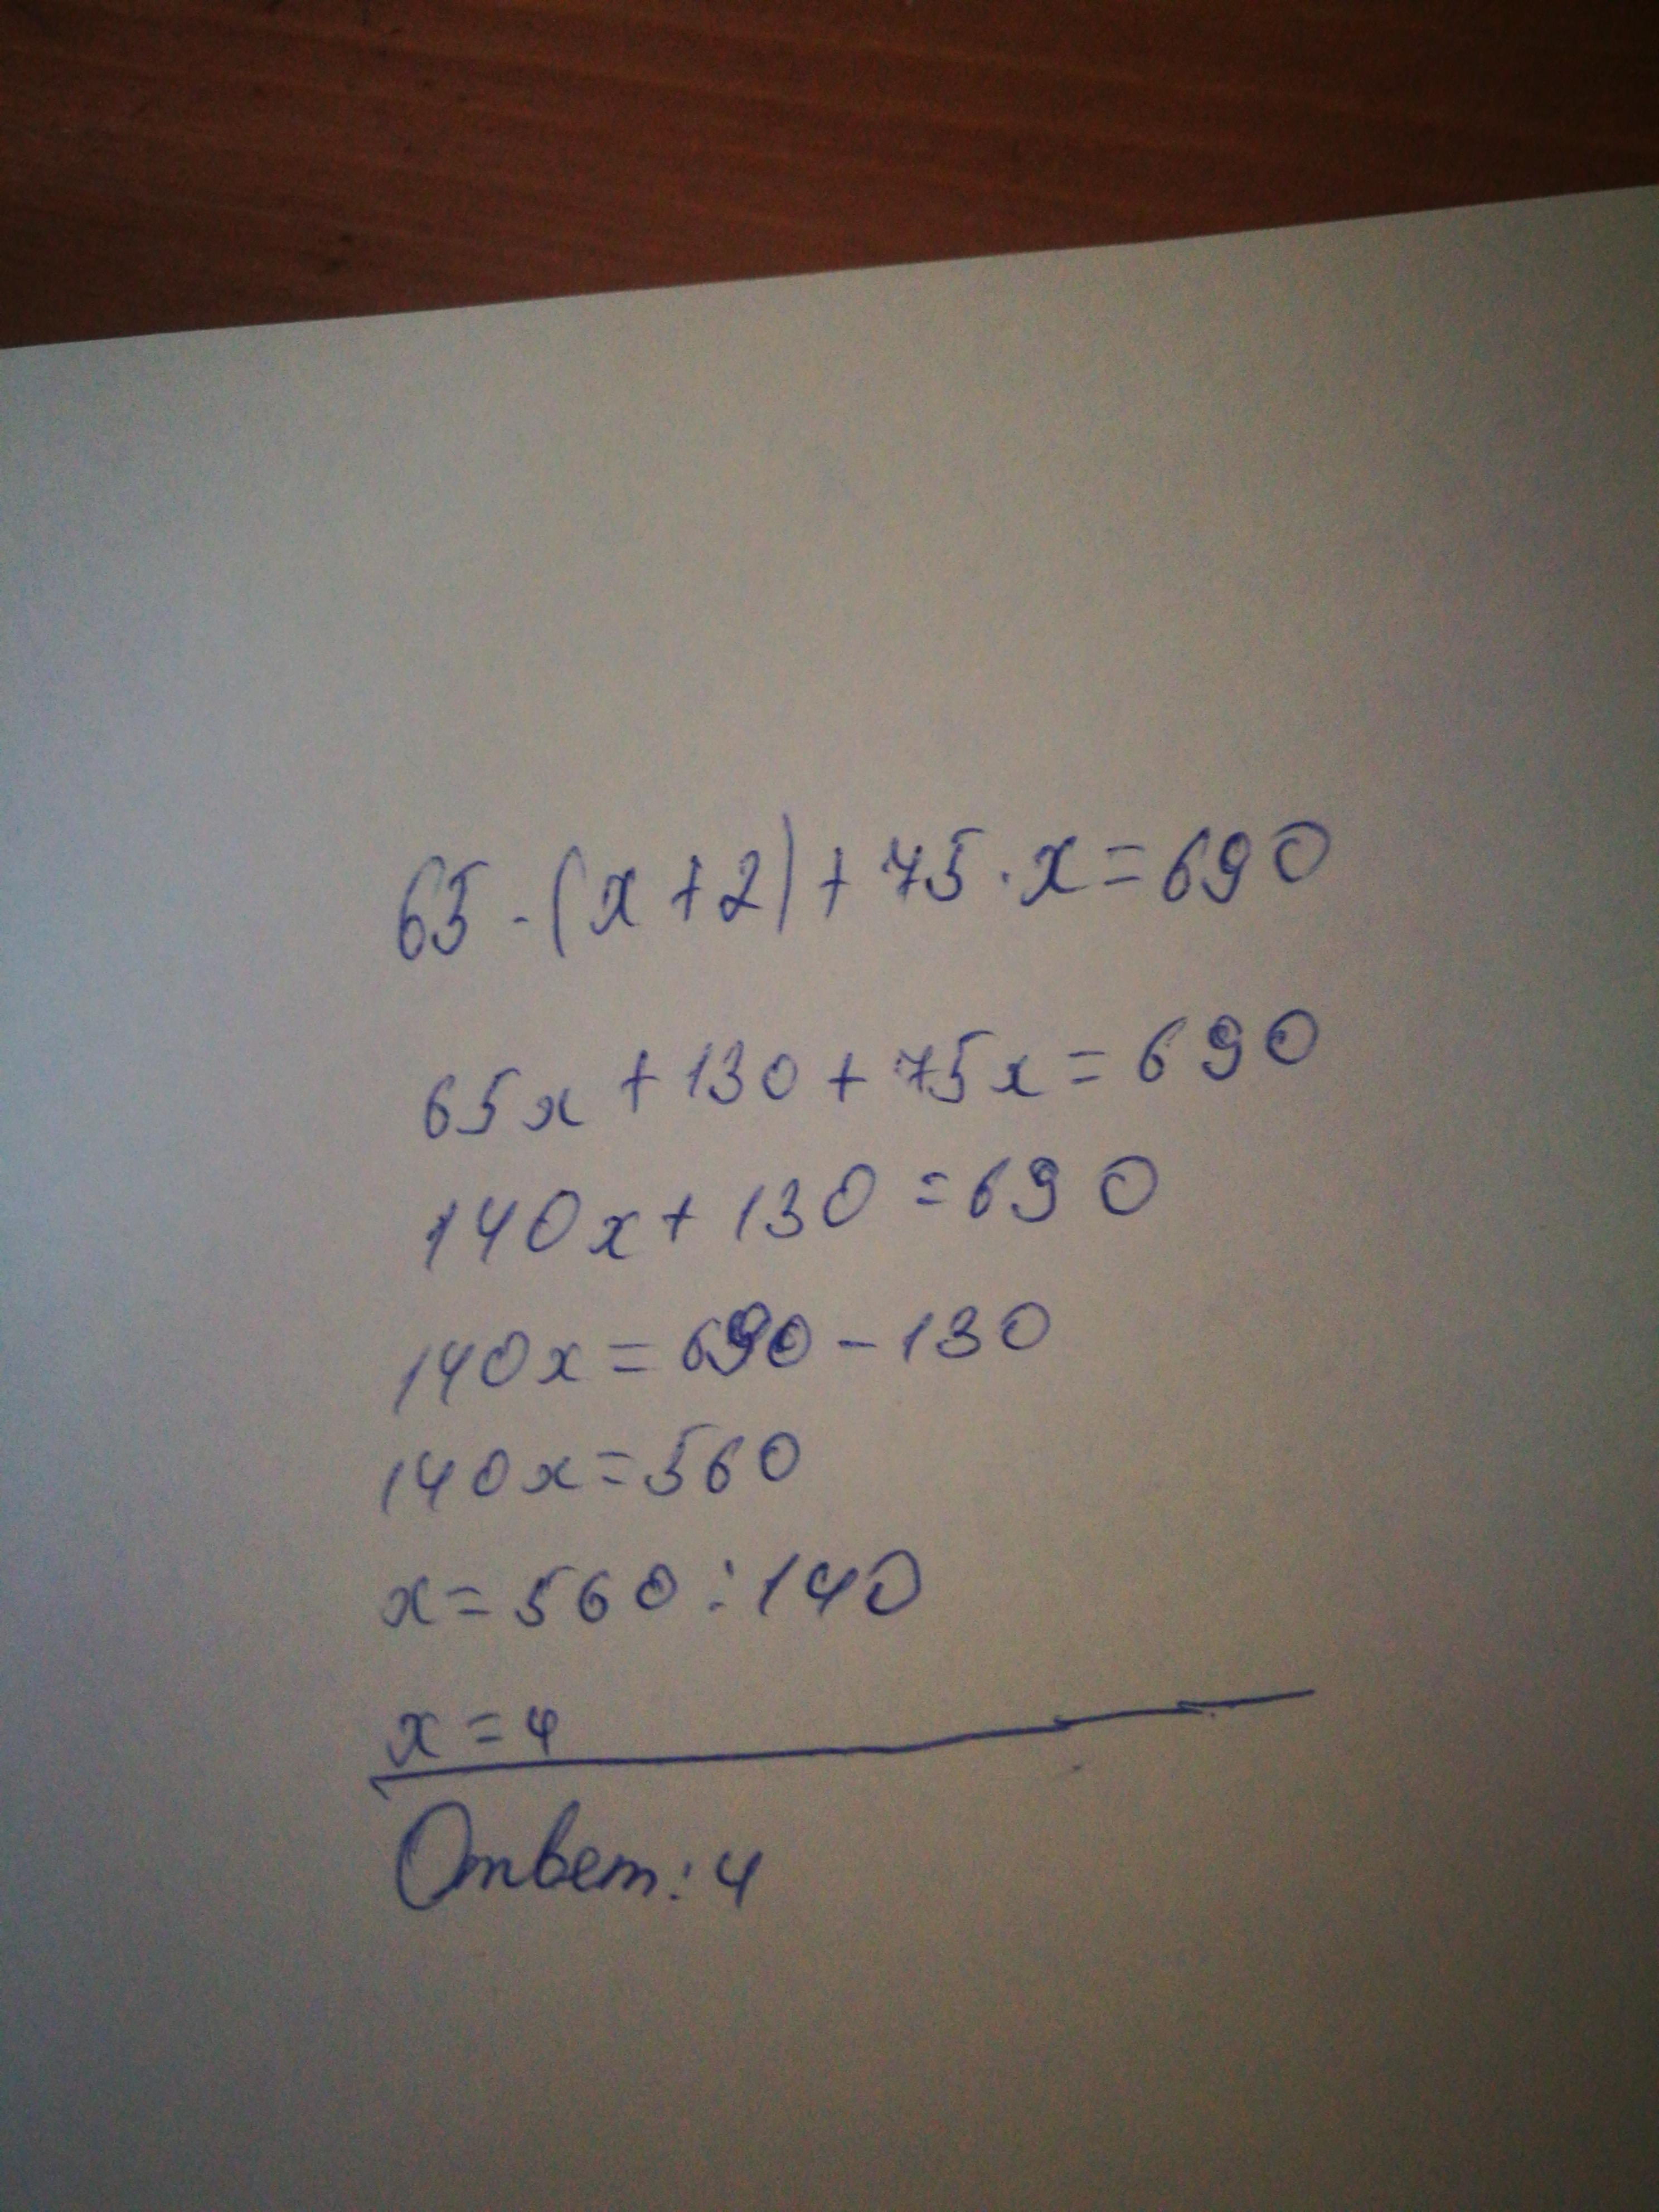 65·(x+2)+75·x=690
65x+130+75x=690
140x+130=690
140x=690-130
140x=560
x=560:140
x=4
Ответ:4